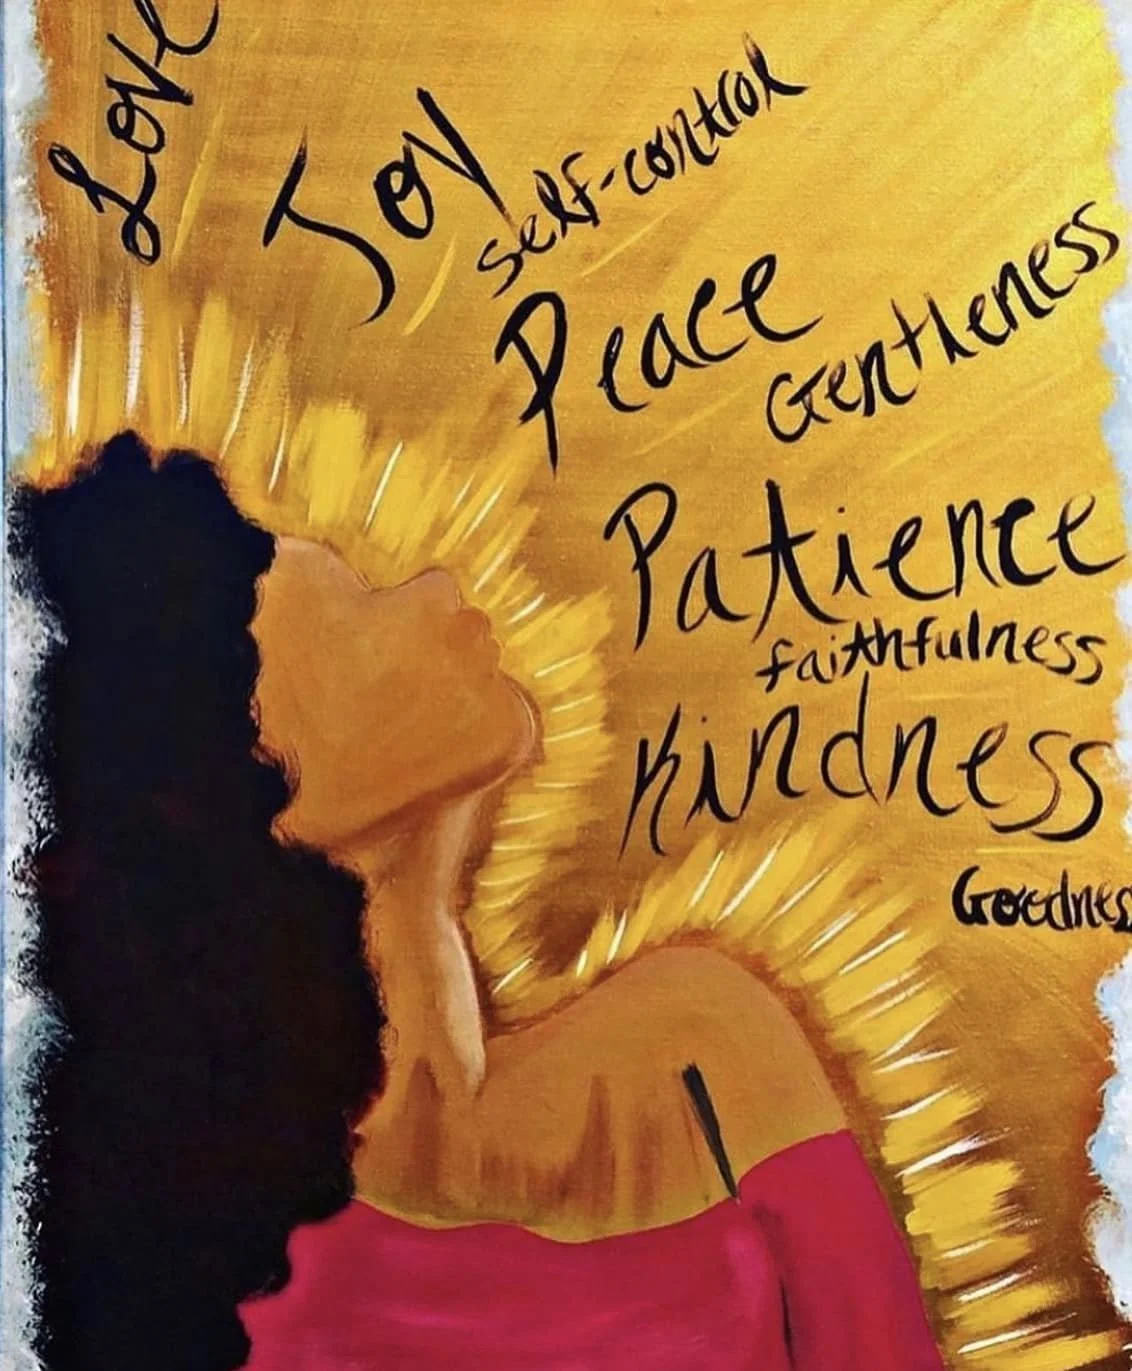 Love
Joy
self-control
Peace
Gentleness
Patience
faithfulness
Kindness
Goodness